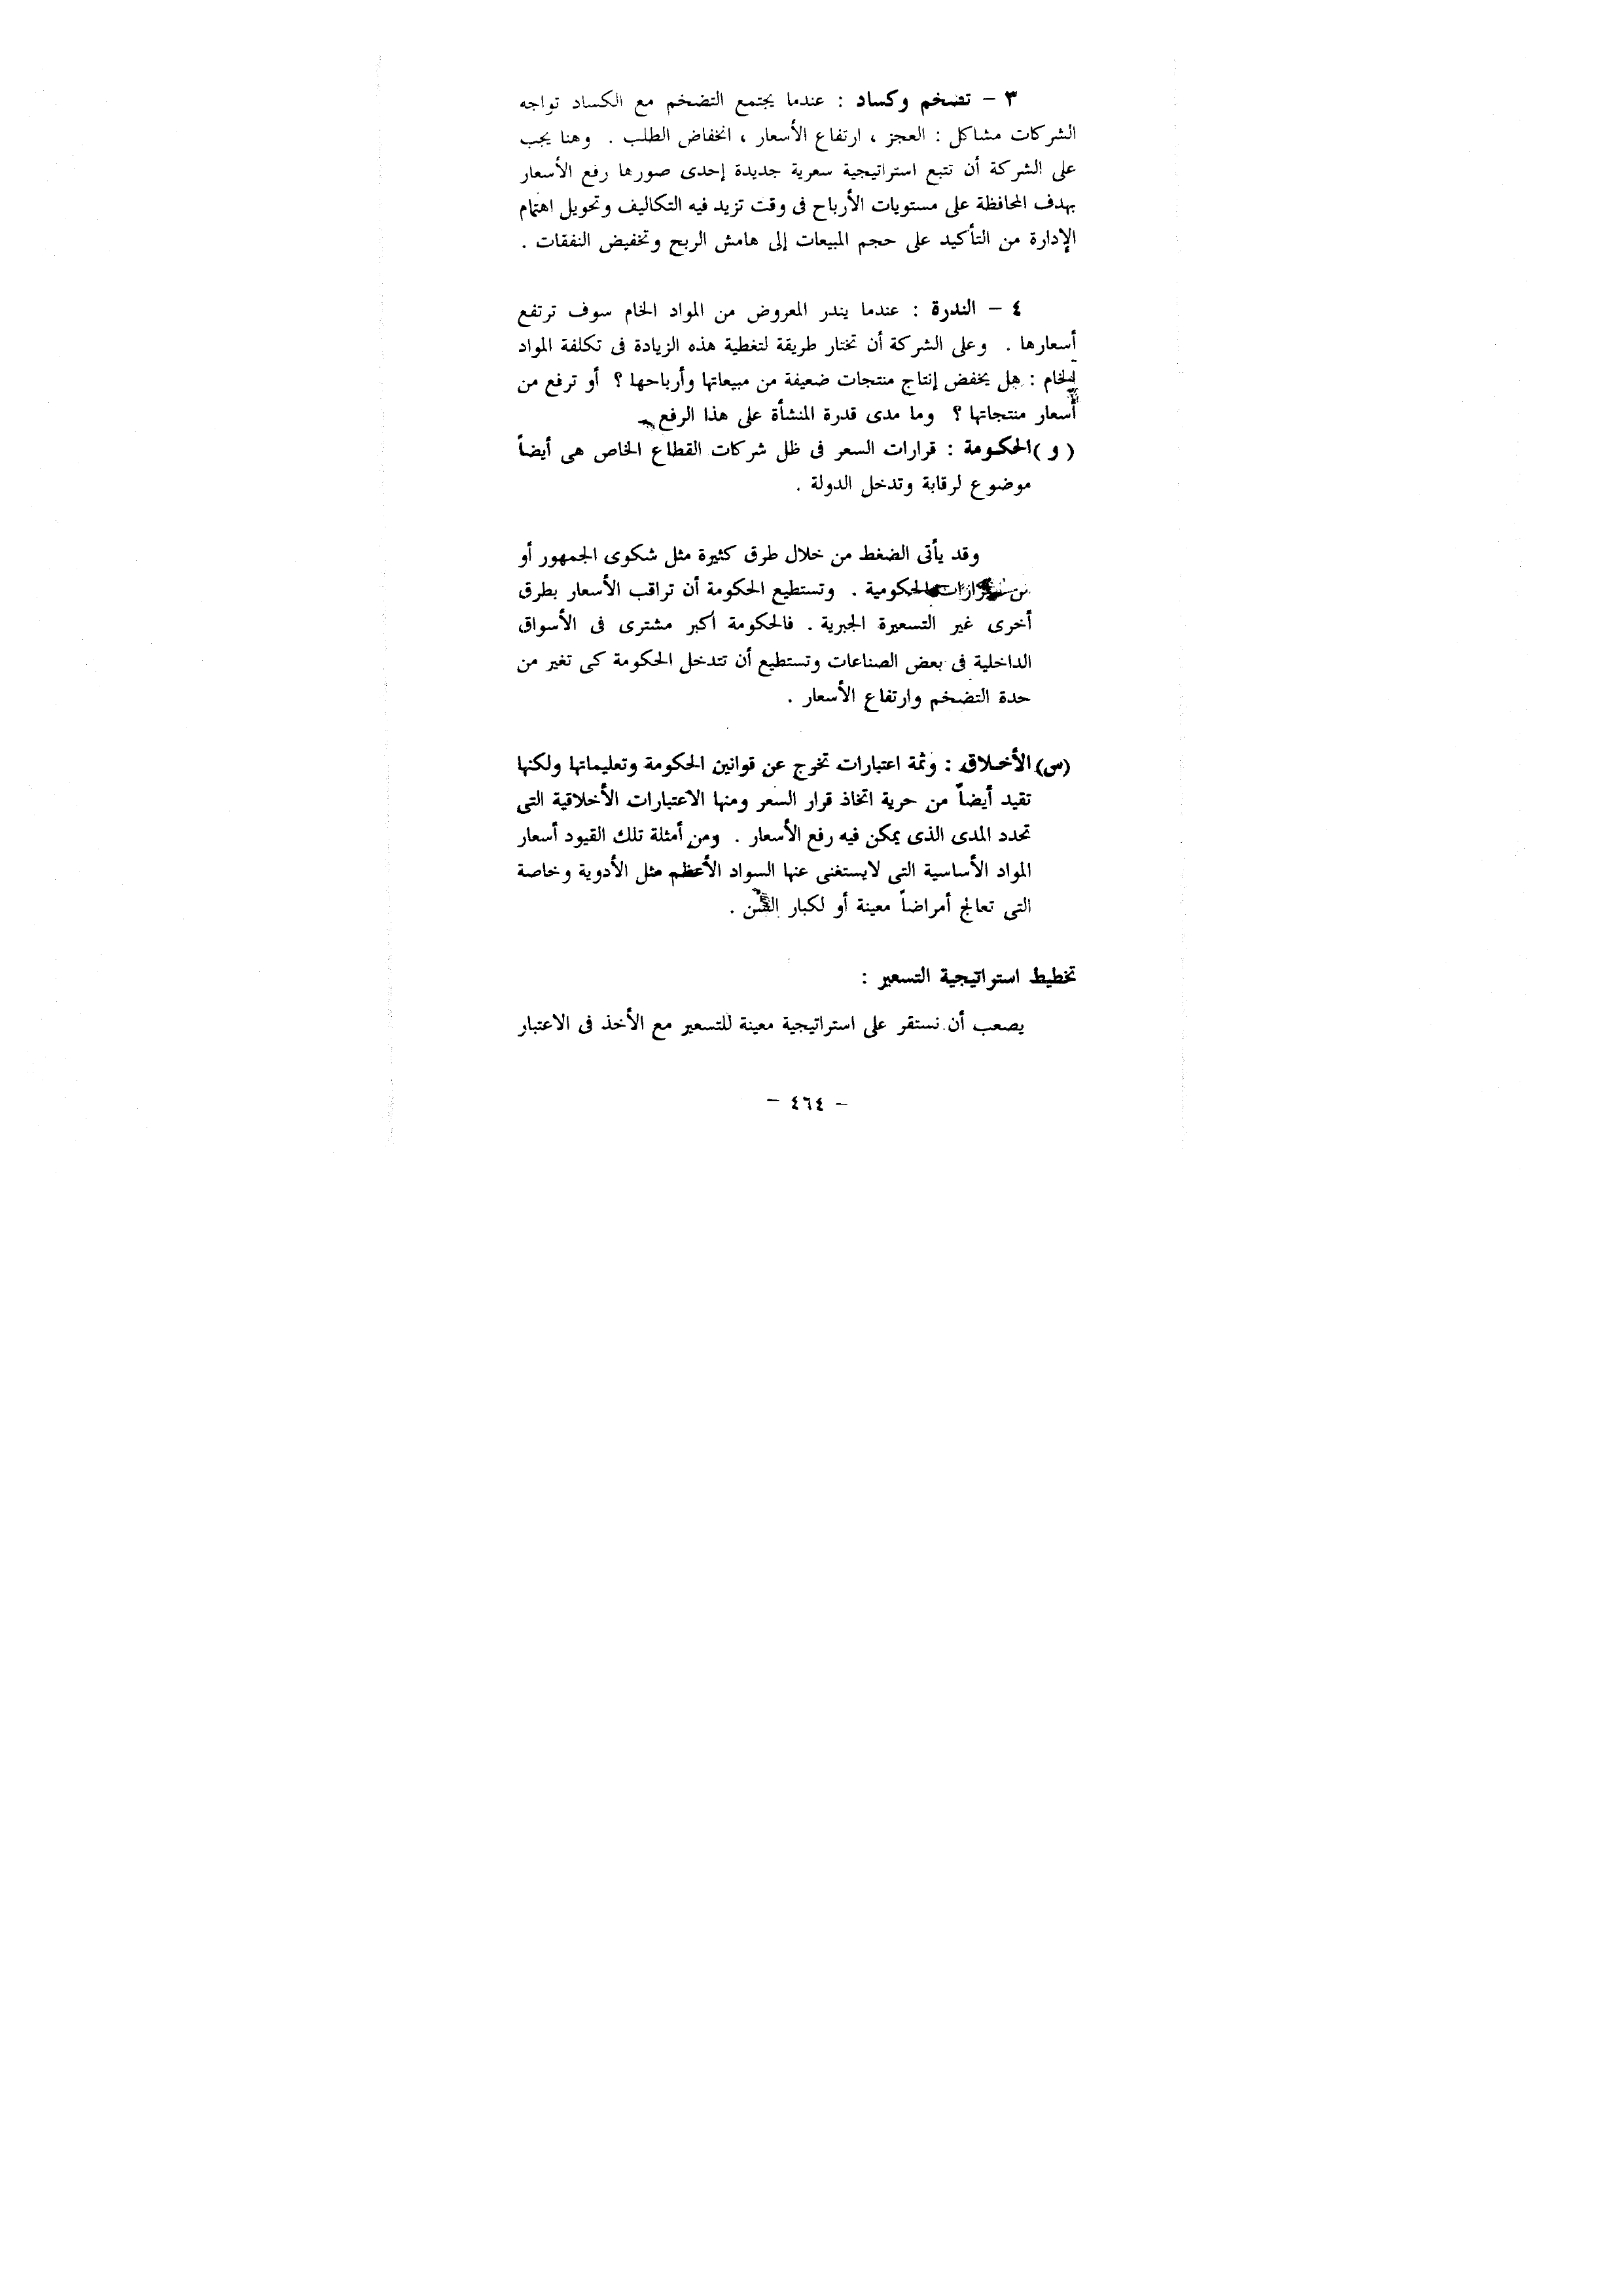 ٣ – تضخم وكساد : عندما يجتمع التضخم مع الكساد تواجه
الشركات مشاكل : العجز ، ارتفاع الأسعار ، انخفاض الطلب . وهنا يجب
على الشركة أن تتبع استراتيجية سعرية جديدة إحدى صورها رفع الأسعار
بهدف المحافظة على مستويات الأرباح فى وقت تزيد فيه التكاليف وتحويل اهتمام
الإدارة من التأكيد على حجم المبيعات إلى هامش الربح وتخفيض النفقات .
٤ – الندرة : عندما يندر المعروض من المواد الخام سوف ترتفع
أسعارها . وعلى الشركة أن تختار طريقة لتغطية هذه الزيادة فى تكلفة المواد
الخام : هل يخفض إنتاج منتجات ضعيفة من مبيعاتها وأرباحها ؟ أو ترفع من
أسعار منتجاتها ؟ وما مدى قدرة المنشأة على هذا الرفع
( و ) الحكومة : قرارات السعر فى ظل شركات القطاع الخاص هى أيضاً
موضوع لرقابة وتدخل الدولة .
وقد يأتى الضغط من خلال طرق كثيرة مثل شكوى الجمهور أو
الحكومية . وتستطيع الحكومة أن تراقب الأسعار بطرق
أخرى غير التسعيرة الجبرية . فالحكومة أكبر مشترى فى الأسواق
الداخلية فى بعض الصناعات وتستطيع أن تتدخل الحكومة كى تغير من
حدة التضخم وارتفاع الأسعار .
(س) الأخلاق : وثمة اعتبارات تخرج عن قوانين الحكومة وتعليماتها ولكنها
تقيد أيضاً من حرية اتخاذ قرار السعر ومنها الاعتبارات الأخلاقية التى
تحدد المدى الذى يمكن فيه رفع الأسعار . ومن أمثلة تلك القيود أسعار
المواد الأساسية التى لايستغنى عنها السواد الأعظم مثل الأدوية وخاصة
التى تعالج أمراضاً معينة أو لكبار السن .
تخطيط استراتيجية التسعير :
يصعب أن نستقر على استراتيجية معينة للتسعير مع الأخذ فى الاعتبار
– ٤٦٤ –